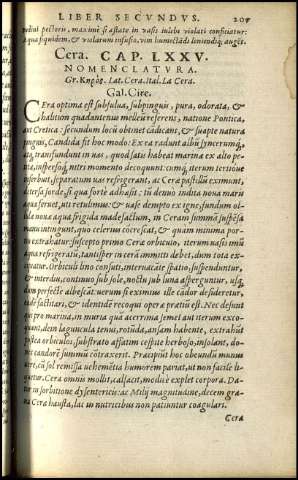 LIBER SECVNDVS. 209
pediui pectoris, maximè si æstate in vasis iulebi violati conficiatur:
aqua siquidem, & violarum infusio, vim humectādi liniendiq; auget.
Cera. CAP. LXXV.
NOMENCLATVRA.
Gr. Κηρὸς. Lat. Cera. Ital. La Cera.
Gal. Cire.
CEra optima est subfulua, subpinguis, pura, odorata, &
halitum quadantenus mellis referens, natione Pontica,
aut Cretica: secundum locū obtinet cādicans, & suapte natura
pinguis, Candida fit hoc modo: Ex ea radunt albū syncerumq́;
transfundunt in vas, quod satis habeat marinæ ex alto pe-
superfosso, nitri momento decoquunt: cumq́; iterum tertioue
efferbuit, separatum vas refrigerant, ac Cerā pastillū eximunt,
detersa sorde, si qua fortè adhæsit: tū denuo indita noua maris
aqua feruet, vti retulimus: & vase dempto ex igne, fundum ol-
læ nouæ aqua frigida madefactum, in Ceram summā suspēsa
manu intingunt, quo celerius cōcrescat, & quàm minima por-
extrahatur: suscepto primo Ceræ orbiculo, iterum vasis imū
aqua refrigeratū, tantisper in cerā immitti debet, dum tota ex-
Orbiculi lino consuti, internacāte spatio, suspenduntur,
& interdiu, continuo sub sole, noctu sub luna asperguntur,
dum perfectè albescāt: verum si eximius ille cādor desideretur,
sæpe factitari, & identidē recoqui operæ prætiū est. Nec desunt
qui pro marina, in muria quā acerrima semel aut iterum exco-
quunt, dein laguncula tenui, rotūda, ansam habente, extrahūt
postea orbiculos, substrato assatim cespite herboso, insolant, do-
nec candorē summū cōtraxerit. Præcipiūt hoc obeundū munus
vere, cū sol remissa vehemētia humorem pariat, vt non facile li-
quetur. Cera omnis mollit, calfacit, modicè explet corpora. Da-
tur in sorbitione dysentericis: ac Milij magnitudine, decem gra-
na Cera hausta, lac in nutricibus non patiuntur coagulari.
Cera